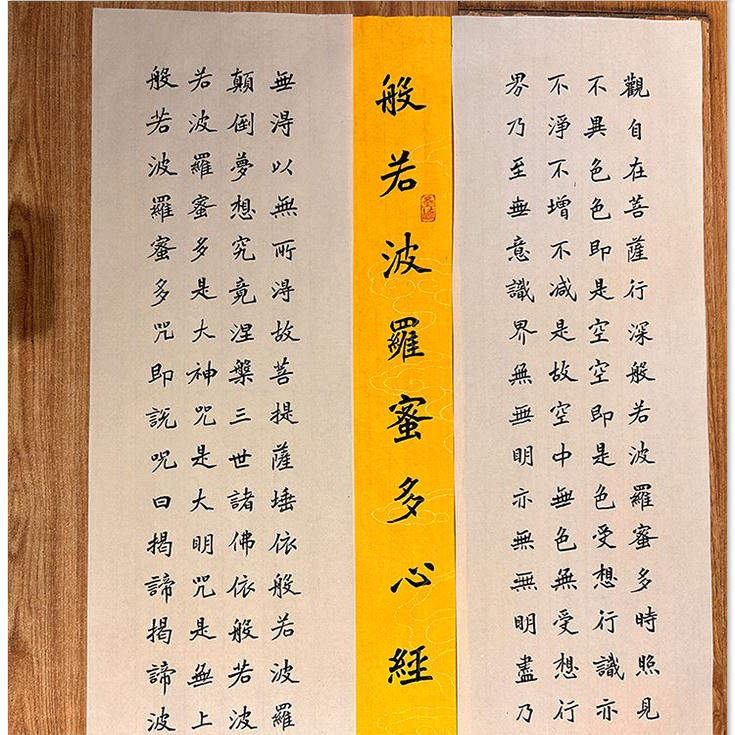 觀自在菩薩行深般若波羅蜜多時照見
不異色色即是空空即是色受想行識亦
不淨不增不減是故空中無色無受想行
界乃至無意識界無無明亦無無明盡乃
般若波羅蜜多心經
無得以無所得故菩提薩埵依般若波羅
顛倒夢想究竟涅槃三世諸佛依般若波
若波羅蜜多是大神咒是大明咒是無上
般若波羅蜜多咒即說咒曰揭諦揭諦波